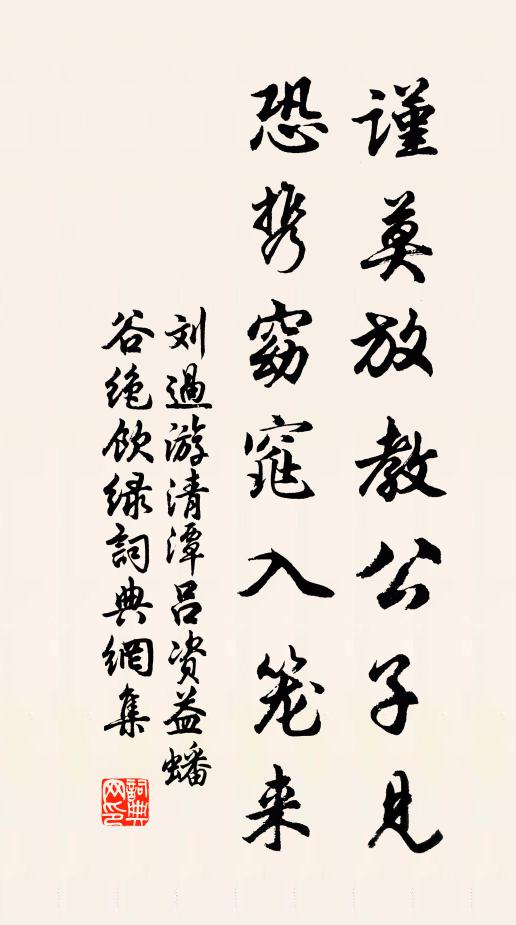 谨莫放教公子见
恐携窈窕入笼来
刘過游清潭吕资益蟠
谷绝饮绿詞典網集
詞典
网印